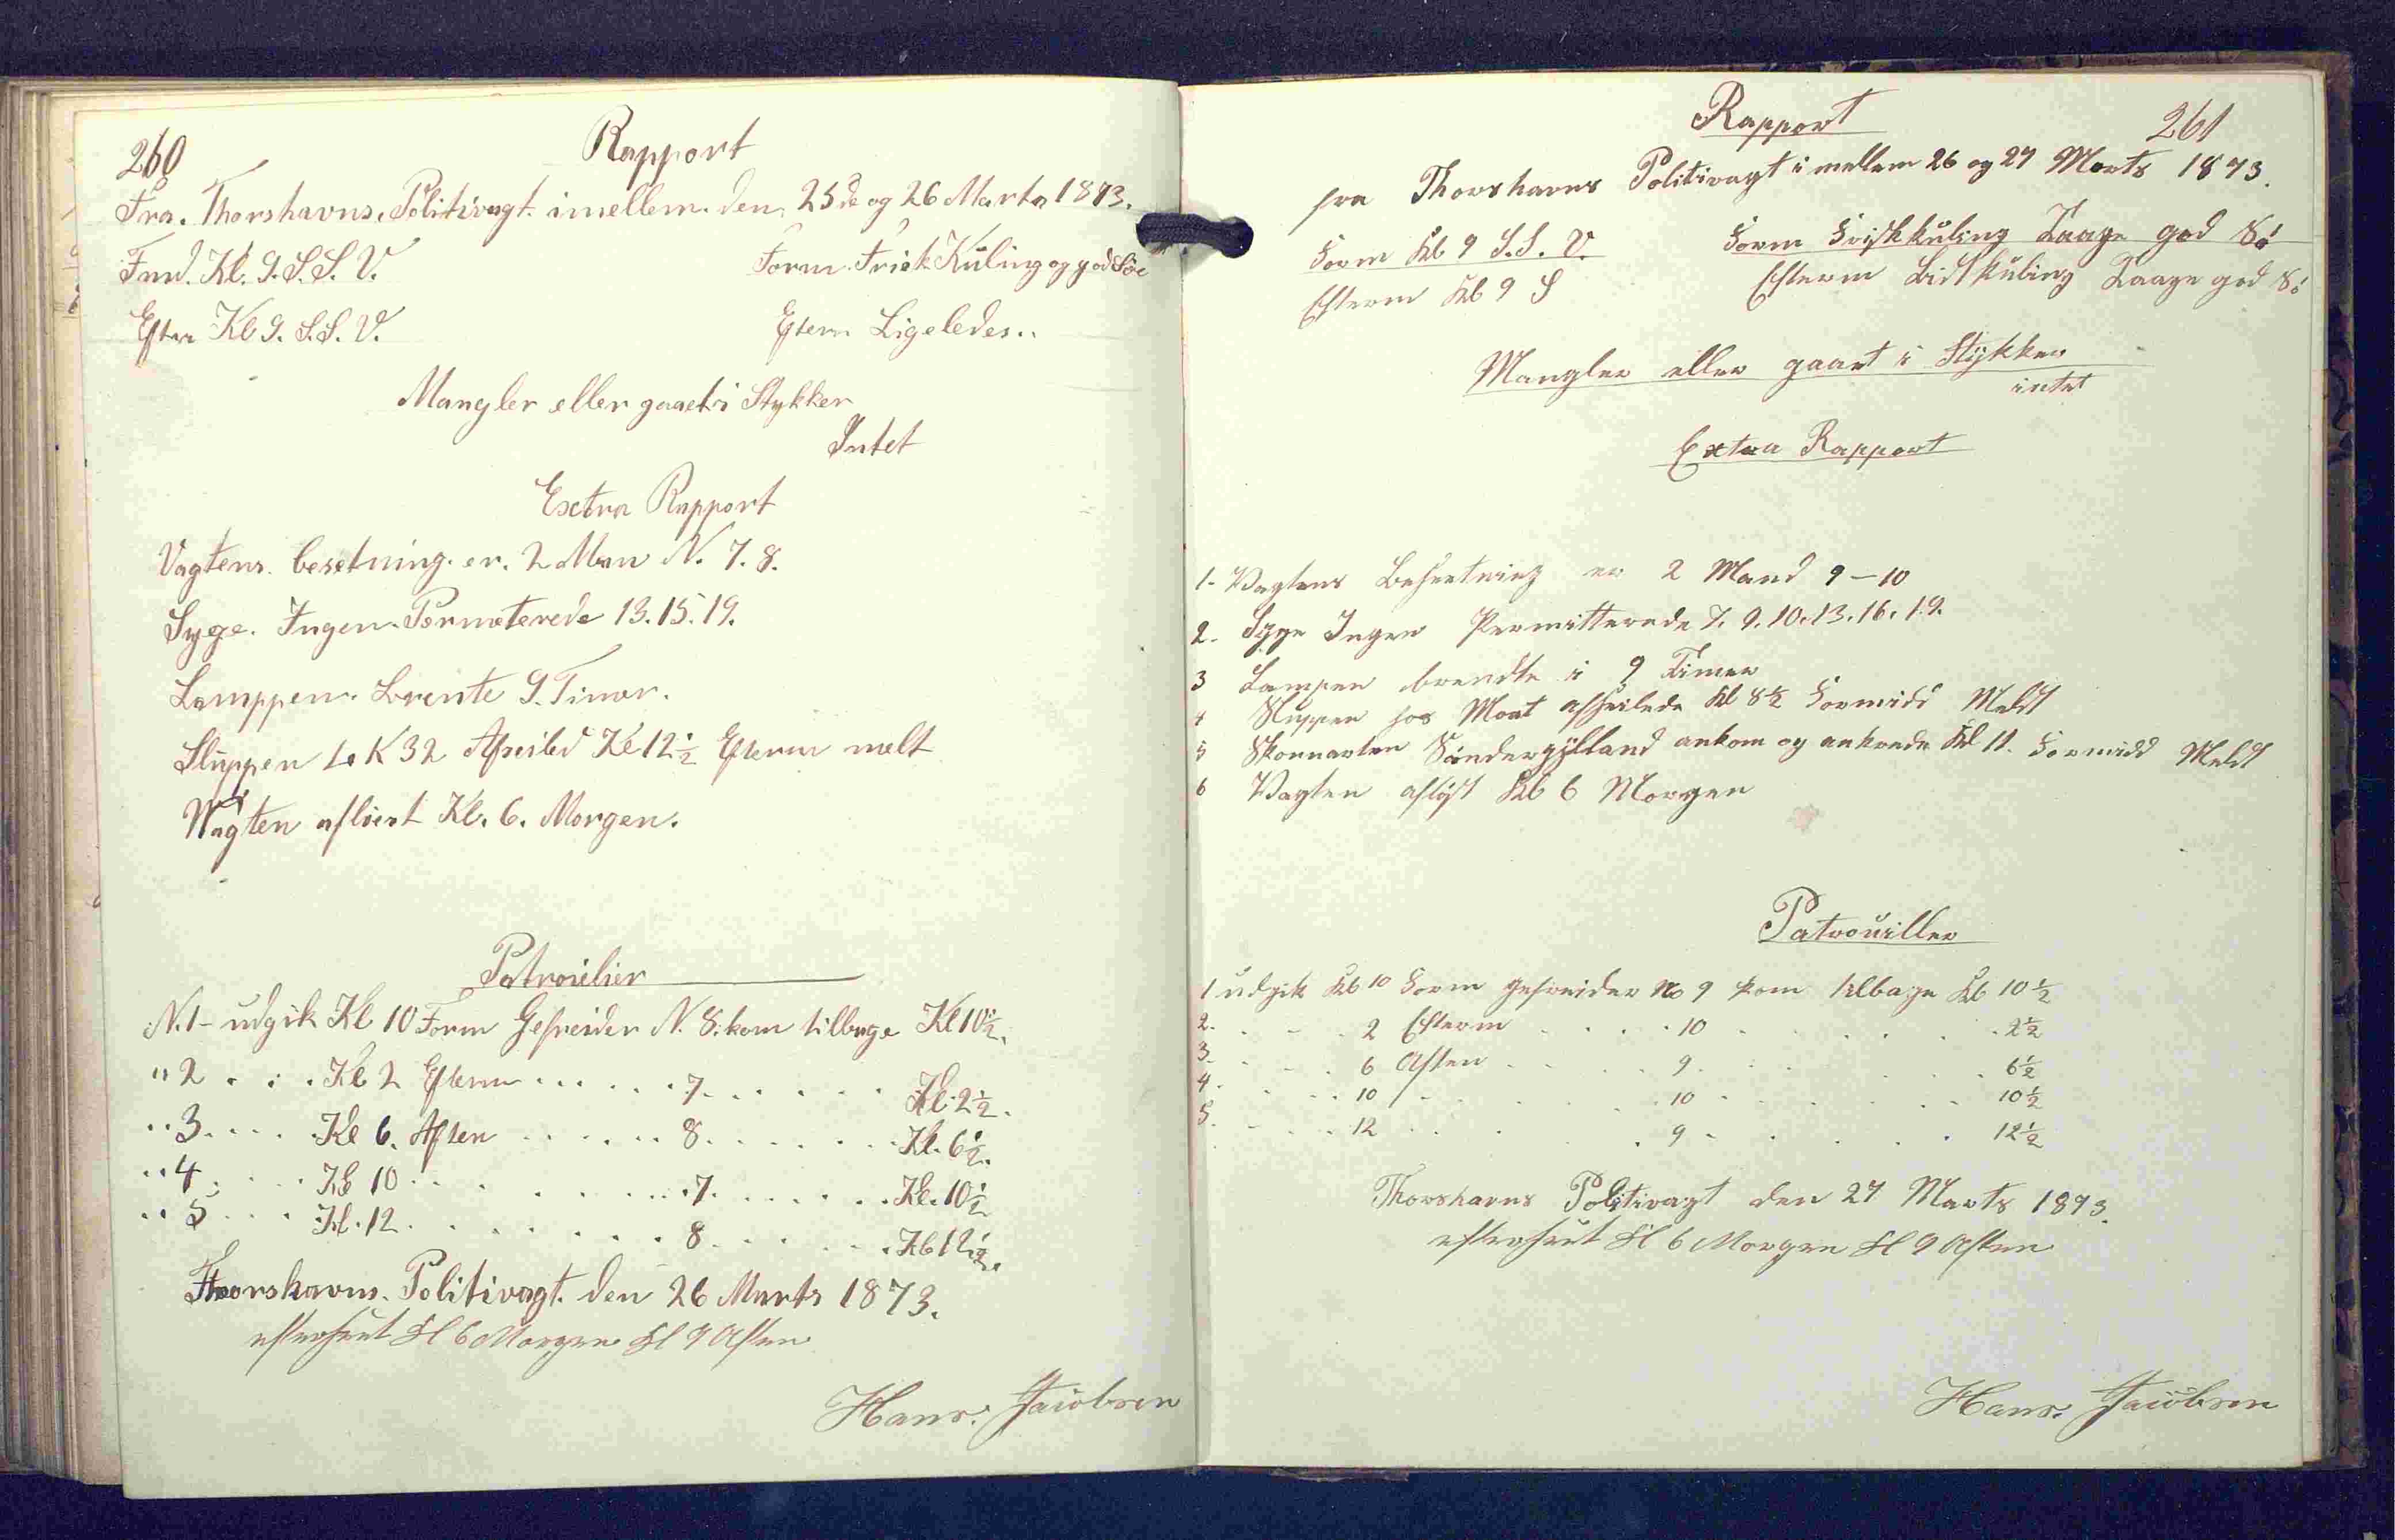 260
Rapport
Fra. Thorshavns. Politivagt. imellem. den 25 de og 26 Marts 1873.
Fmd. Kl. 9. S.S.V. Form. Frisk Kuling og god Söe
Eftm Kl 9. S.S.V. Eftem Ligeledes..
Mangler eller gaaet i Stykker
Intet
Exctra Rapport
Vagtens. besetning. er. 2 Man N. 7. 8.
Syge. Ingen. Permeterede 13. 15. 19.
Lamppen. Brente 9. Timer.
Sluppen L.K 32 Afseiled Kl 12½ Efterm melt
Wagten aflöest Kl. 6. Morgen.
Patroulier
N. 1 - udgik Kl 10 Form Gefreider N. 8. kom tilbage Kl 10½.
" 2 . . . Kl 2 Efterm . . . . . . 7 . . . . . . Kl. 2½.
" 3 . . . . Kl 6. Aften . . . . . . 8 . . . . . . Kl. 6½.
" 4 . . . . Kl 10 . . . . . . . . 7 . . . . . . Kl. 10½
" 5 . . . Kl. 12 . . . . . . . . 8 . . . . . . Kl 12½.
Thorshavns. Politivagt. den 26 Marts 1873.
efterseet Kl 6 Morgen Kl 9 Aften
Hans. Jacobsen
Rapport
261
fra Thorshavns Politivagt i mellem 26 og 27 Marts 1873.
Form Kl 9 S.S.V. Form Friskkuling Taage god Sö
Efterm Kl 9 S Efterm Bidskuling Taage god Sö
Mangler eller gaaet i Stykker
intet
Extra Rapport
1- Vagtens Besætning er 2 Mand 9 – 10
2. Syge Ingen Permitterede 7. 9. 10. 13. 16. 19.
3 Lampen brendte i 9 Timer
4 Sluppen hos Mort afseilede Kl 8½ Formidd Meldt
5 Skonnarten Sönderjylland ankom og ankrede Kl 11. Formidd Meldt
6 Vagten aflöst Kl 6 Morgen
Patrouiller
1 udgik Kl 10 Form gefreider No 9 kom tilbage Kl 10½
2. . . . 2 Efterm . . . . 10 . . . . . 2½
3. . . . 6 Aften . . . . 9 . . . . . 6½
4. . . . 10 . . . . . 10 . . . . . 10½
5. . . . 12 . . . . . 9 . . . . . 12½
Thorshavns Politivagt den 27 Marts 1873.
efterseet Kl 6 Morgen Kl 9 Aften
Hans. Jacobsen